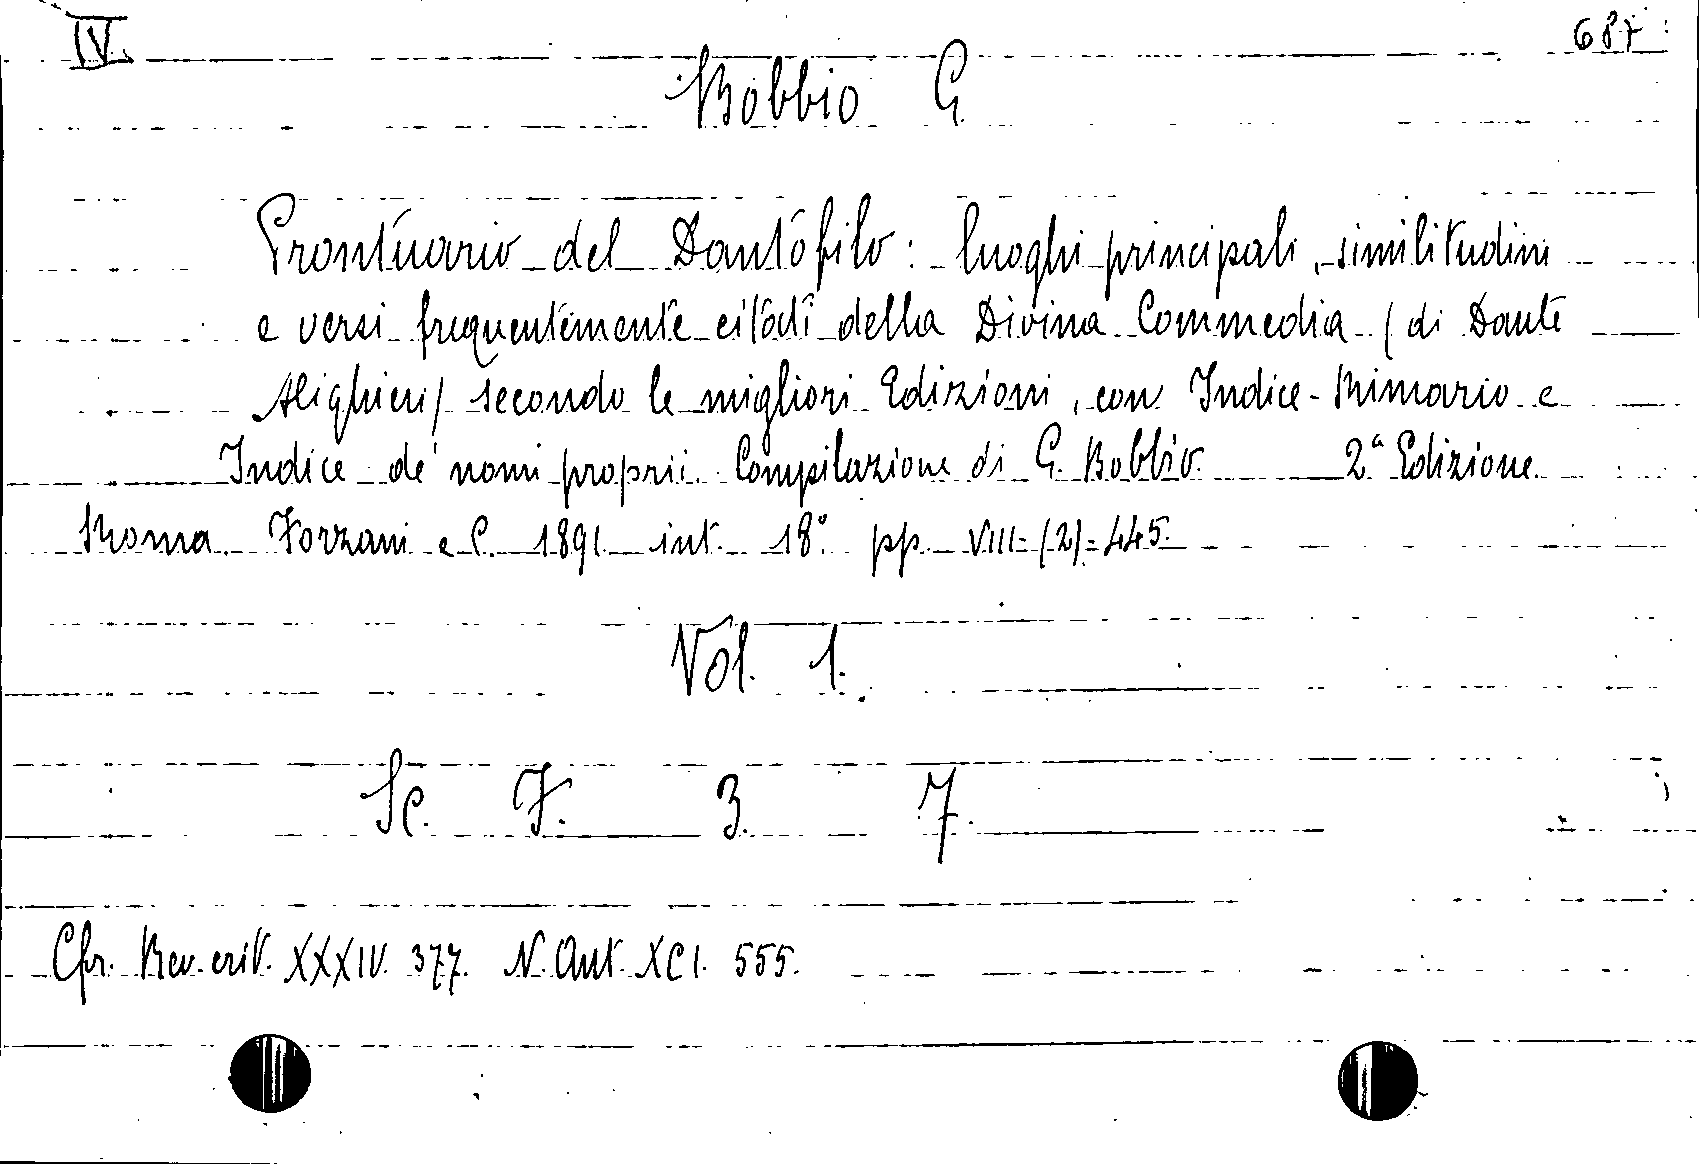 IV. 687
Bobbio G.
Prontuario del Dantofilo: luoghi principali, similitudini
e versi frequentemente citati della Divina Commedia (di Dante
Alighieri) secondo le migliori Edizioni, con Indice-Rimario e
Indice de' nomi proprii. Compilazione di G. Bobbio. 2ª Edizione.
Roma. Forzani e C. 1891. int. 18° pp. VIII-(2)-445.
Vol. 1.
Sc. F. 3. 7.
Cfr. Rev. crit. XXXIV. 377. N. Ant. XCI. 555.